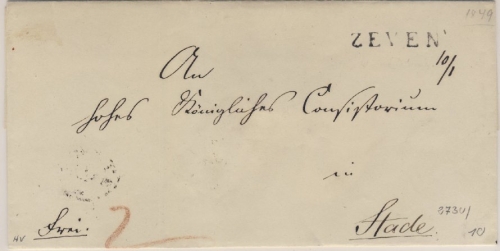 1849
ZEVEN
10/1
An
hohes Königliches Consistorium
in
Stade.
frei.
HV
3730/
10